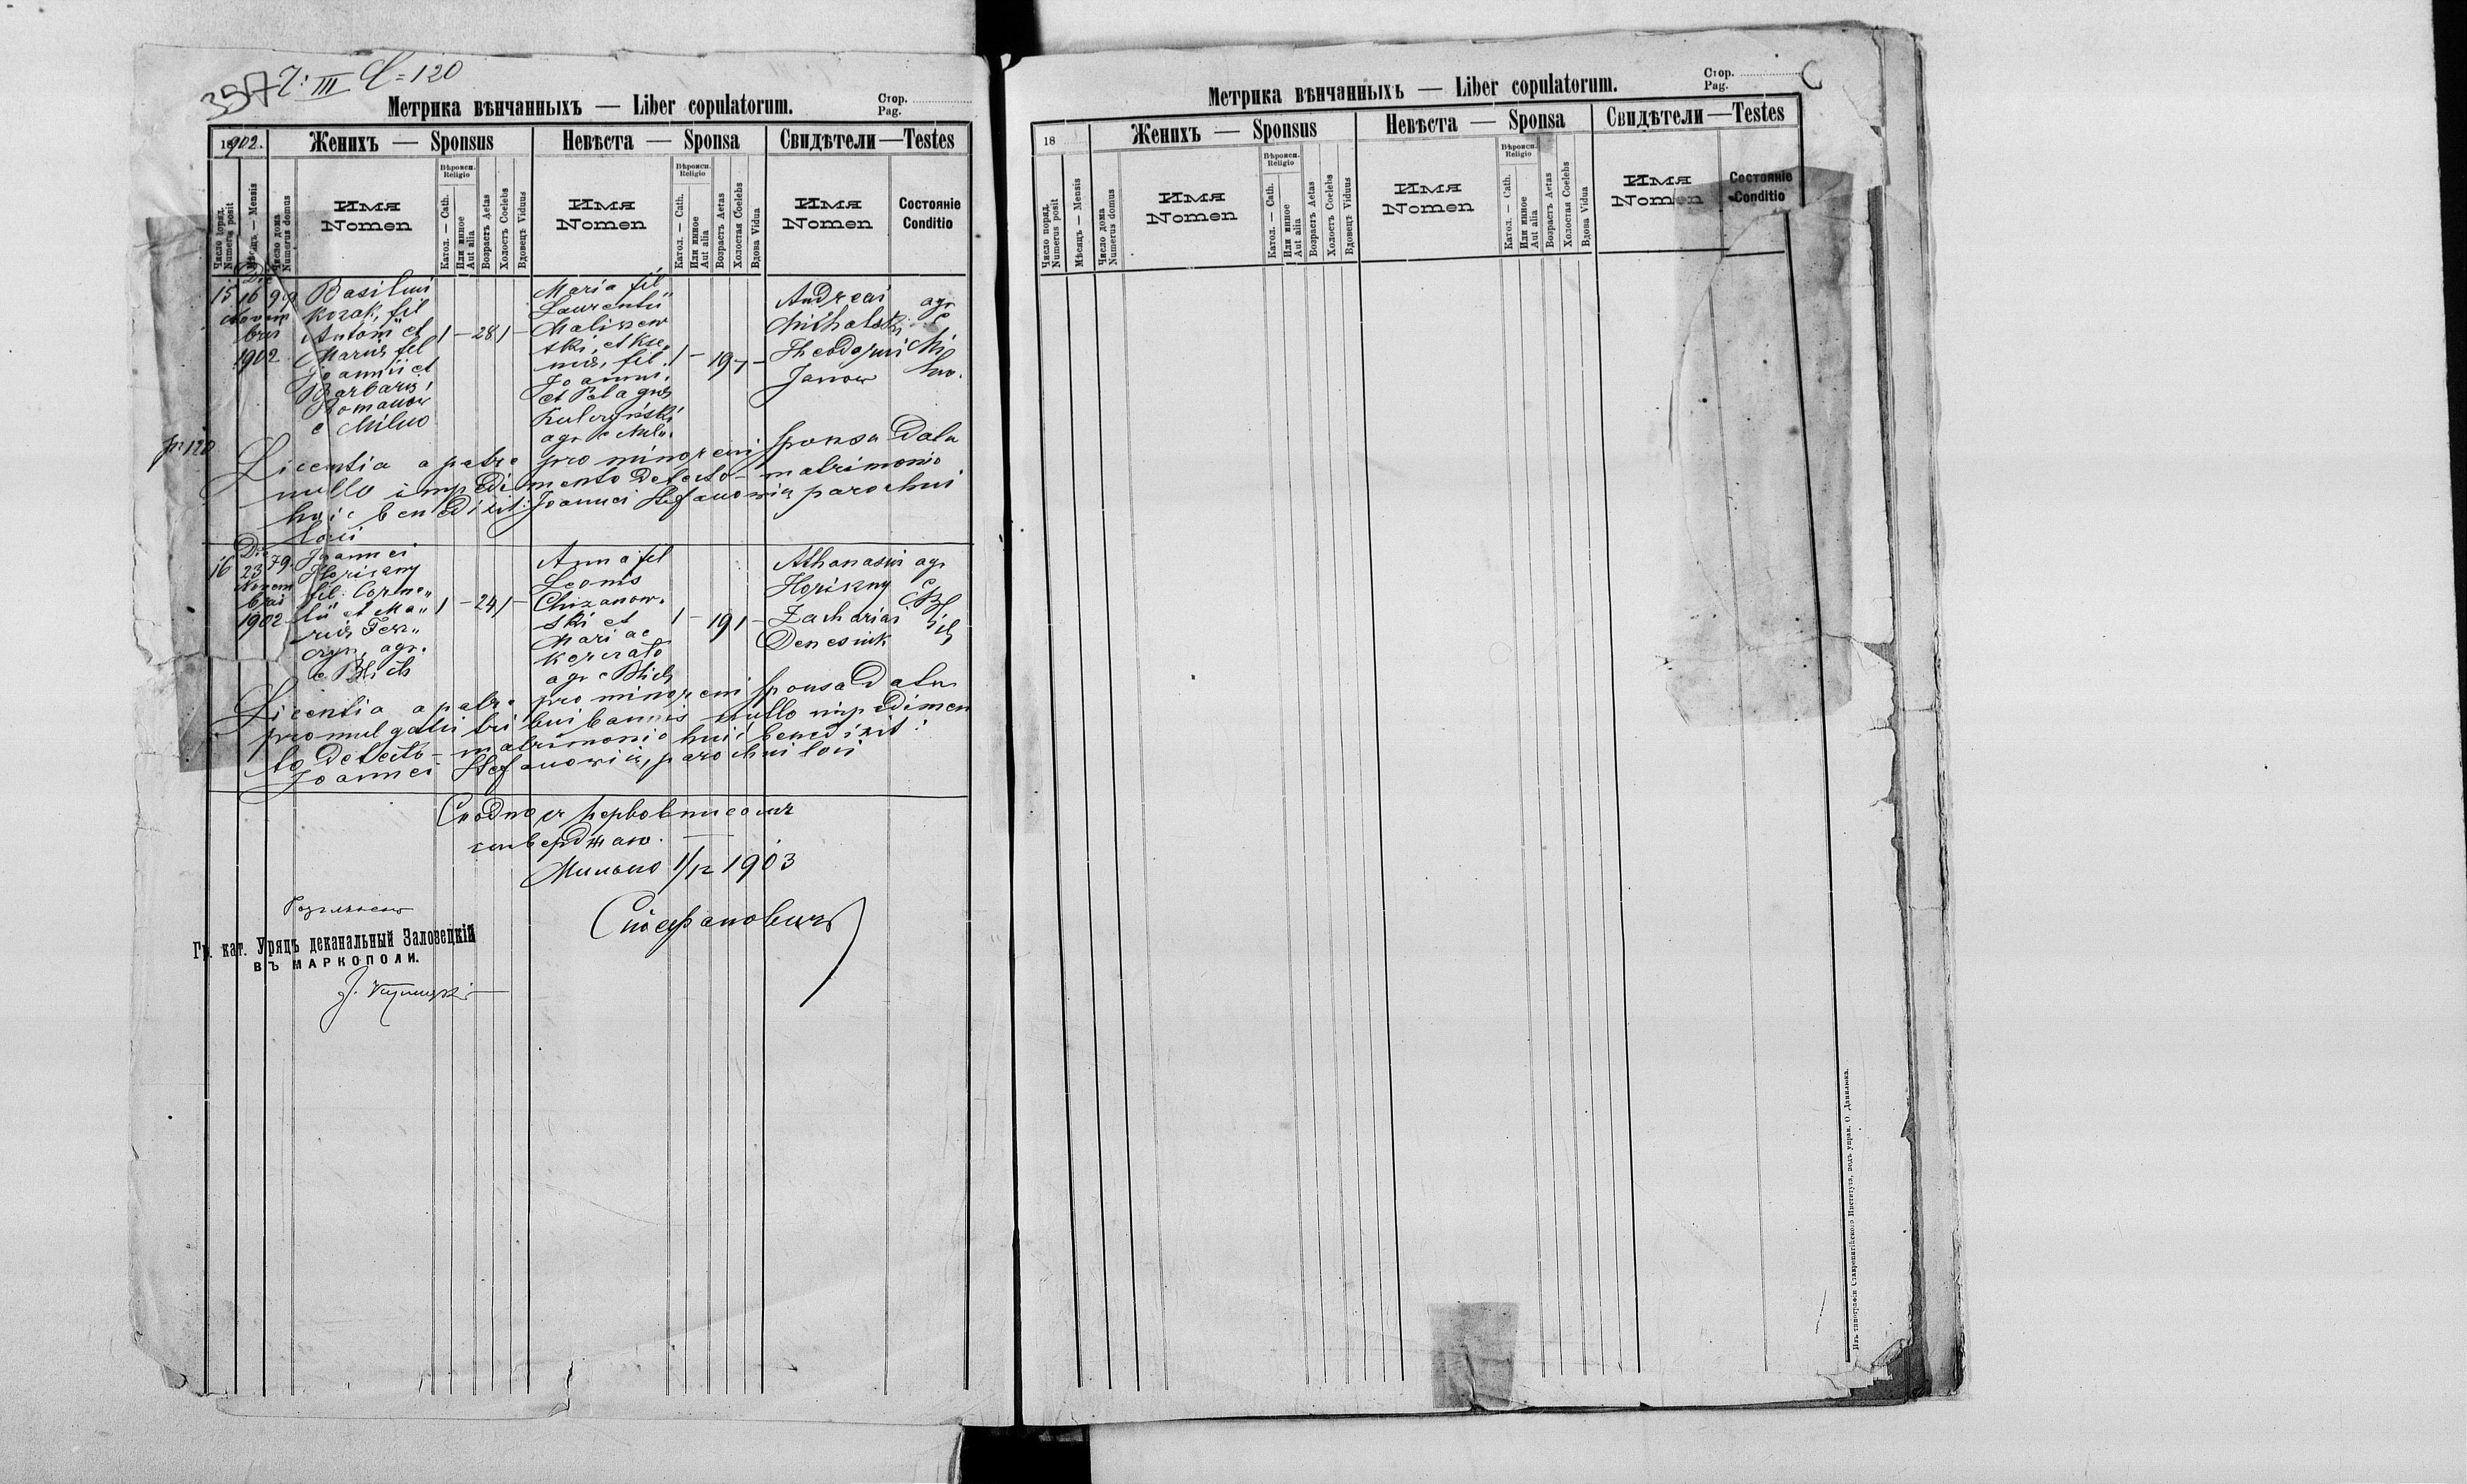 357 T: III C = 120
Метрика вѣнчанныхъ — Liber copulatorum.
Стор.
Pag.
1902.
Женихъ — Sponsus
Невѣста — Sponsa
Свидѣтели — Testes
Число поряд.
Numerus posit
Мѣсяцъ — Mensis
Число дома
Numerus domus
Имя
Nomen
Вѣроисп.
Religio
Катол. — Cath.
Или инное
Aut alia
Возрастъ Aetas
Холостъ Coelebs
Вдовецъ Viduus
Имя
Nomen
Вѣроисп.
Religio
Катол. — Cath.
Или инное
Aut alia
Возрастъ Aetas
Холостая Coelebs
Вдова Vidua
Имя
Nomen
Состояніе
Conditio
15
Die
16
Novem
bris
1902
99
Basilius
Kozak, fil
Antonii et
Mariae fil
Joannis et
Barbarae
Romanow
e Milno
1 — 28 1 —
Maria fil
Laurentii
Maliszew
ski, et Kse
niae, fil.
Joannis
et Pelagiae
Kulczyński
agr e Miln.
1 — 19 1 —
Andreas
Michalski
Theodorus
Janow
agr
e
Mi
lno.
Licentia a patre pro minoreni sponsa data
nullo impedimento detecto — matrimonio
huic benedixit: Joannes Stefanowicz parochus
loci
16
Die
23
Novem
bris
1902
79.
Joannes
Horiszny
fil. Corne„
lii et Ma„
riae Fer„
agr.
e Blich
1 — 24 1 —
Anna fil
Leonis
Chizanow„
ski et
Mariae
agr e Blich
1 — 19 1 —
Athanasius
Horiszny
Zacharias
Denesiuk
agr
e
Bl
ich
Licentia a patre pro minoreni sponsa data
promulgatis tribus bannis nullo impedimen
to detecto — matrimonio huic benedixit:
Joannes Stefanowicz, parochus loci
Сходно съ первописомъ
тверджаю.
Мильно 1/12 1903
Стефановичъ
Гр. кат. Урядъ деканальный Залозецкій
ВЪ МАРКОПОЛИ.
Метрика вѣнчанныхъ — Liber copulatorum.
Стор.
Pag.
18
Женихъ — Sponsus
Невѣста — Sponsa
Свидѣтели — Testes
Число поряд.
Numerus posit
Мѣсяцъ — Mensis
Число дома
Numerus domus
Имя
Nomen
Вѣроисп.
Religio
Катол. — Cath.
Или инное
Aut alia
Возрастъ Aetas
Холостъ Coelebs
Вдовецъ Viduus
Имя
Nomen
Вѣроисп.
Religio
Катол. — Cath.
Или инное
Aut alia
Возрастъ Aetas
Холостая Coelebs
Вдова Vidua
Имя
Nomen
Состояніе
Conditio
Изъ типографіи Ставропигійского Института, подъ управ. О. Данилюка.